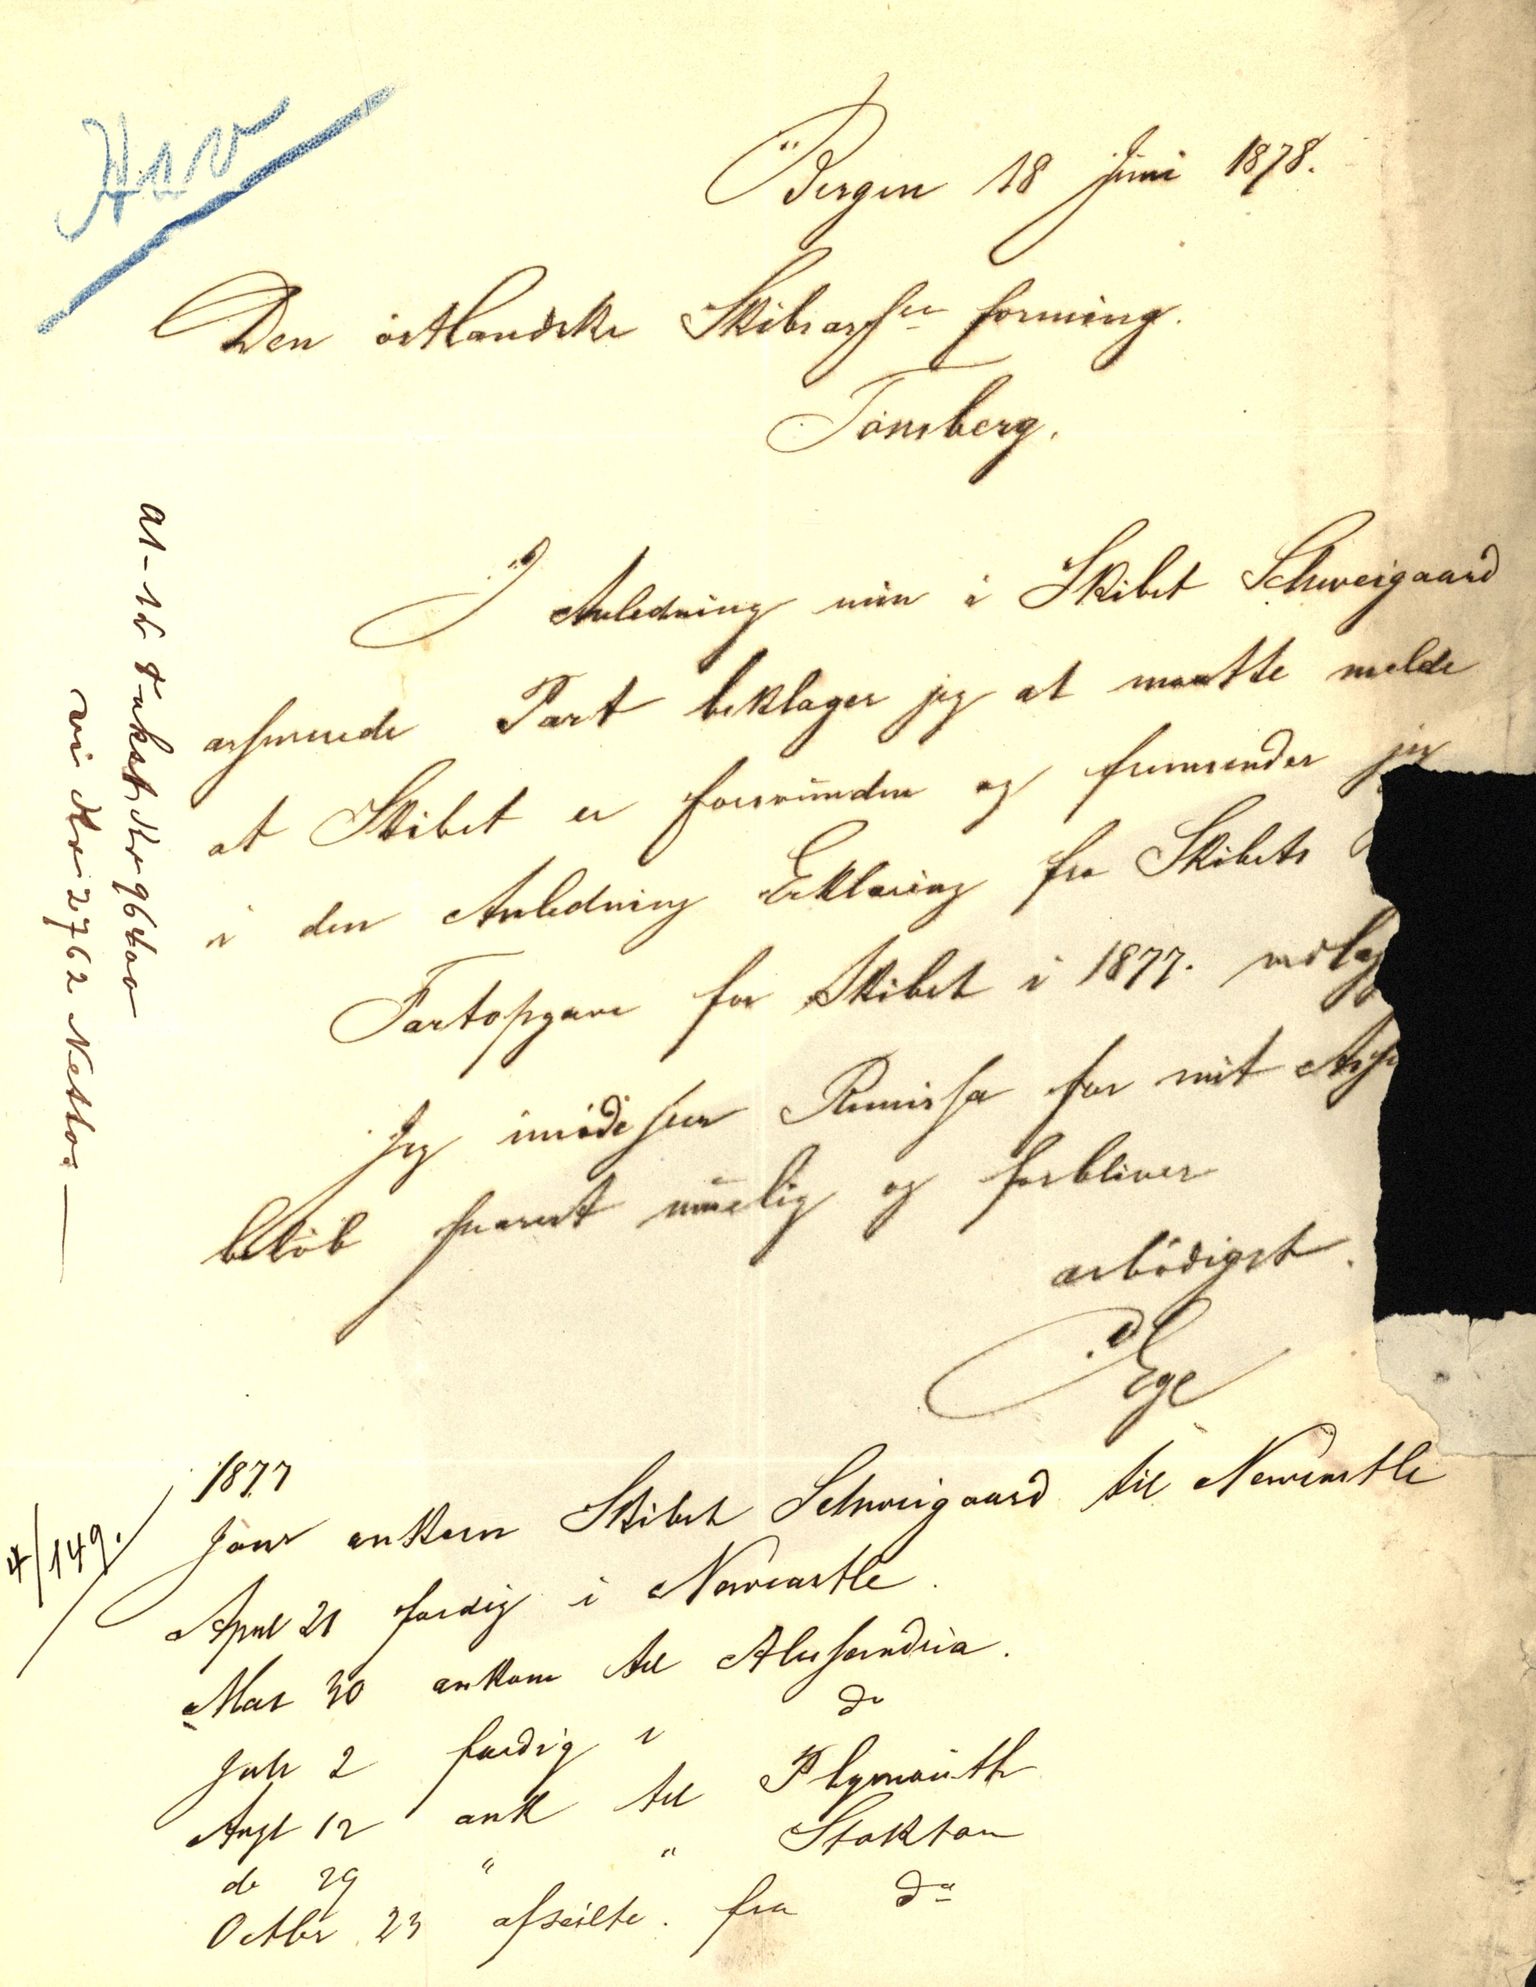 Hav
Bergen 18 Juni 1878.
Den östlandske Skibsassce forening.
Tönsberg.
I Anledning min i Skibet Schweigaard
assurerede Part beklager jeg at maatte melde
at Skibet er forsvunden og fremsender jeg
i den Anledning Erklæring fra Skibets
Fartopgave for Skibet i 1877.
Jeg imödeser Remisse for mit
belöb snarest muelig og forbliver
ærbödigst.
Ege
1877
Janr ankom Skibet Schweigaard til Newcastle
April 21 færdig i Newcastle.
Mai 30 ankom til Alexsandria.
Juli 2 færdig i do
Augt 12 ank til Plymouth
do 29 " " Stokton
Octbr 23 afseilte. fra do
4/149.
Takst Kr 96400
Kr 2762 Netto.